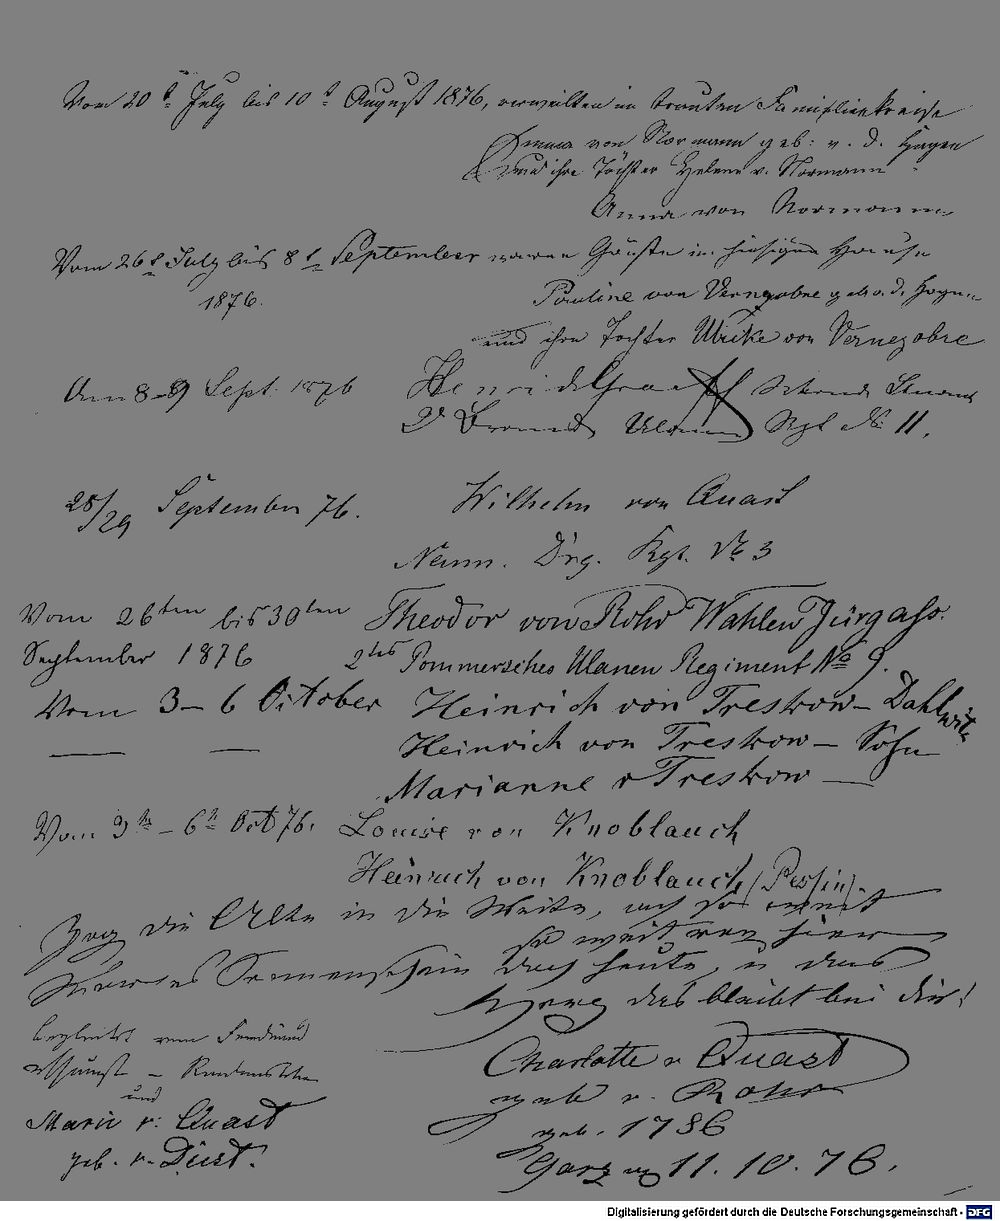 Vom 20t July bis 10t August 1876, verweilten im trauten Familienkreise
Emma von Normann geb: v. d. Hagen
und ihre Töchter Helene v. Normann
Anna von Normann
Vom 26t July bis 8t September waren Gäste im hiesigen Hause
1876.
Pauline von Vernezobre geb. v. d. Hagen
und ihre Tochter Ulrike von Vernezobre
Am 8-9 Sept. 1876
Henri de
2t Brand. Ulanen Rgt No 11.
28/29 September 76.
Wilhelm von Quast
Neum. Drg. Rgt. No 3
Vom 26ten bis 30ten
Theodor von Rohr Wahlen Jürgass.
September 1876
2tes Pommersches Ulanen Regiment No 9.
Vom 3- 6 October
Heinrich von Treskow- Dahlwitz
Heinrich von Treskow - Sohn
Marianne v Treskow —
Vom 3tn - 6tn Oct 76.
Louise von Knoblauch
Heinrich von Knoblauch (Pessin).
die Alte in die Weite, ach so weit
so weit von hier
Sonnenschein doch heute, u das
Herz das bleibt bei dir!
begleitet von
und
Marie v: Quast
geb. v. Düst.
Charlotte v Quast
geb v. Rohr
geb. 1786
Garz 11. 10. 76.
Digitalisierung gefördert durch die Deutsche Forschungsgemeinschaft - DFG